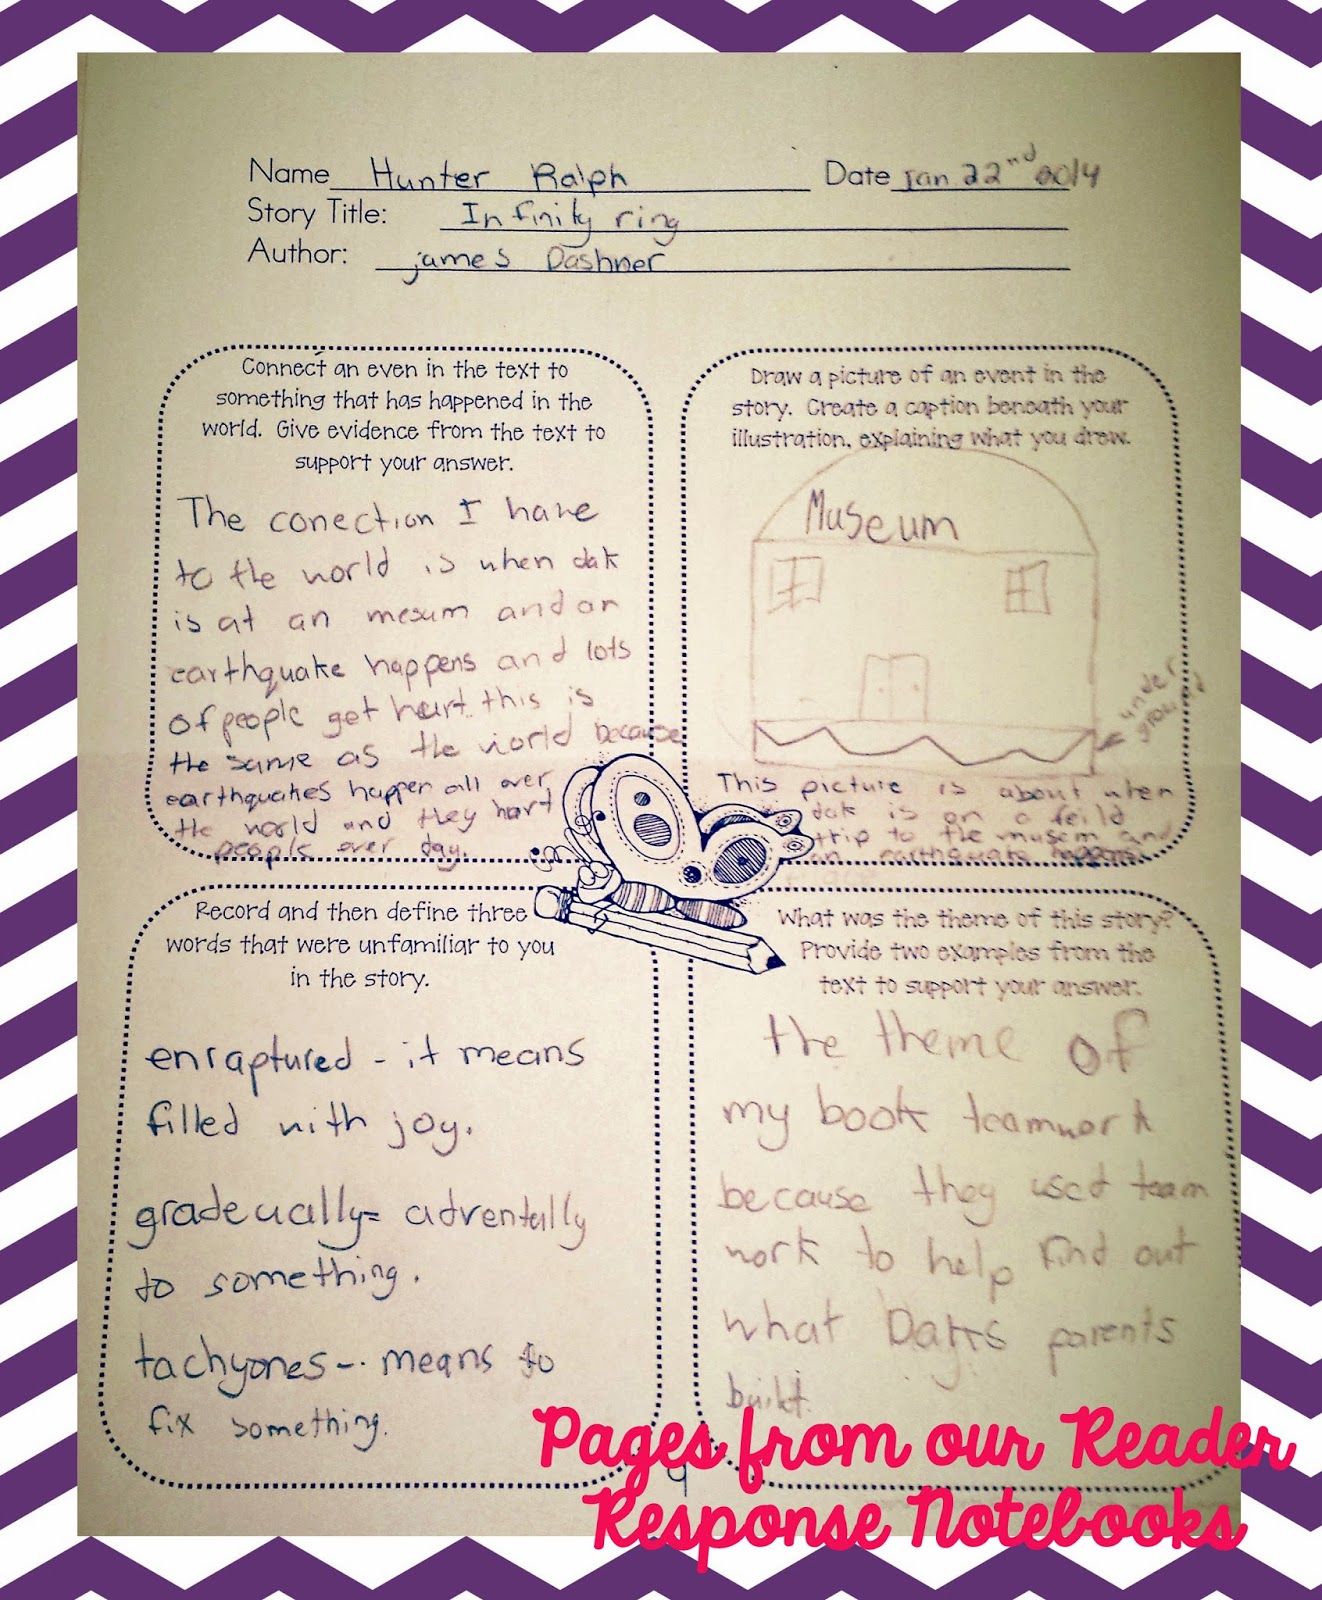 Name Hunter Ralph Date Jan. 22nd 2014
Story Title: Infinity ring
Author: james Dashner
Connect an even in the text to
something that has happened in the
world. Give evidence from the text to
support your answer.
The conection I have
to the world is when dak
is at an mesum and an
earthquake happens and lots
of people get heurt. this is
the same as the world because
earthquakes happen all over
the world and they hart
people over day.
Draw a picture of an event in the
story. Create a caption beneath your
illustration, explaining what you drew.
Museum
under
ground
This picture is about when
dak is on a feild
trip to the musem and
an earthquake happens
Record and then define three
words that were unfamiliar to you
in the story.
enraptured - it means
filled with joy.
gradeually= adventally
to something.
tachyones - means to
fix something.
What was the theme of this story?
Provide two examples from the
text to support your answer.
the theme of
my book teamwork
because they used team
work to help find out
what Dak's parents
built.
9
Pages from our Reader
Response Notebooks